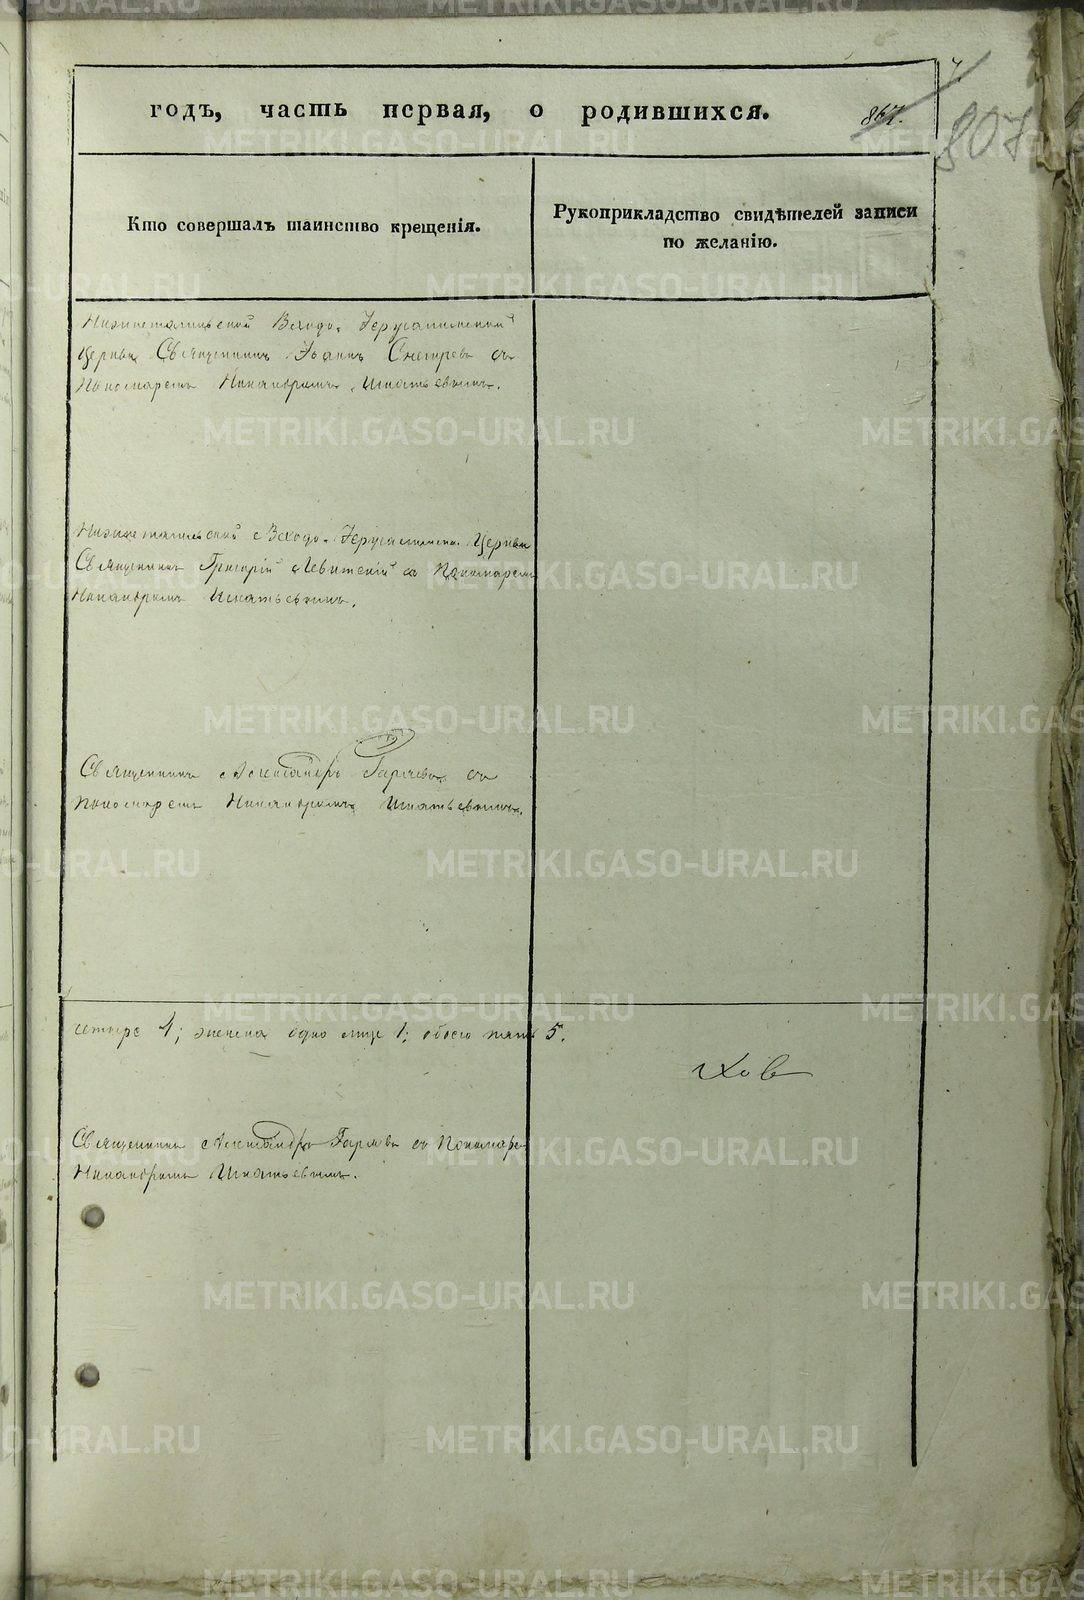 годъ, часть первая, о родившихся.
807
Кто совершалъ таинство крещенія.
Рукоприкладство свидѣтелей записи
по желанію.
Нижнетагильской Входо-Іерусалимской
Церкви Священникъ Іоаннъ съ
Пономаремъ Никанромъ Игнатьевымъ.
Нижнетагильской Входо-Іерусалимск. Церкви
Священникъ Григорій Левитскій съ Пономаремъ
Никанромъ Игнатьевымъ.
Священникъ Александръ съ
Пономаремъ Никанромъ Игнатьевымъ.
четыре 4; женска одно лице 1; обоего пять 5.
ховъ
Священникъ Александръ съ Пономаре
Никанромъ Игнатьевымъ.
METRIKI.GASO-URAL.RU